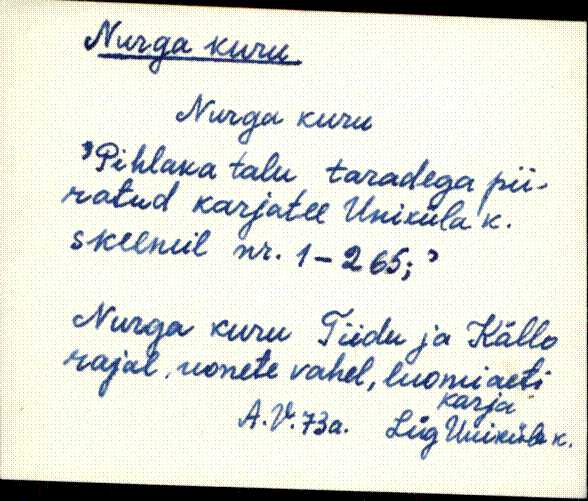 Nurga kuru
Nurga kuru
'Pihlaka talu taradega pii-
ratud karjatee Uniküla k.
skeemil nr. 1-265;'
Nurga kuru Tiidu ja Källo
rajal, uonete vahel, luomi aeti
karja
A.V. 73a. Lüg Uniküla k.